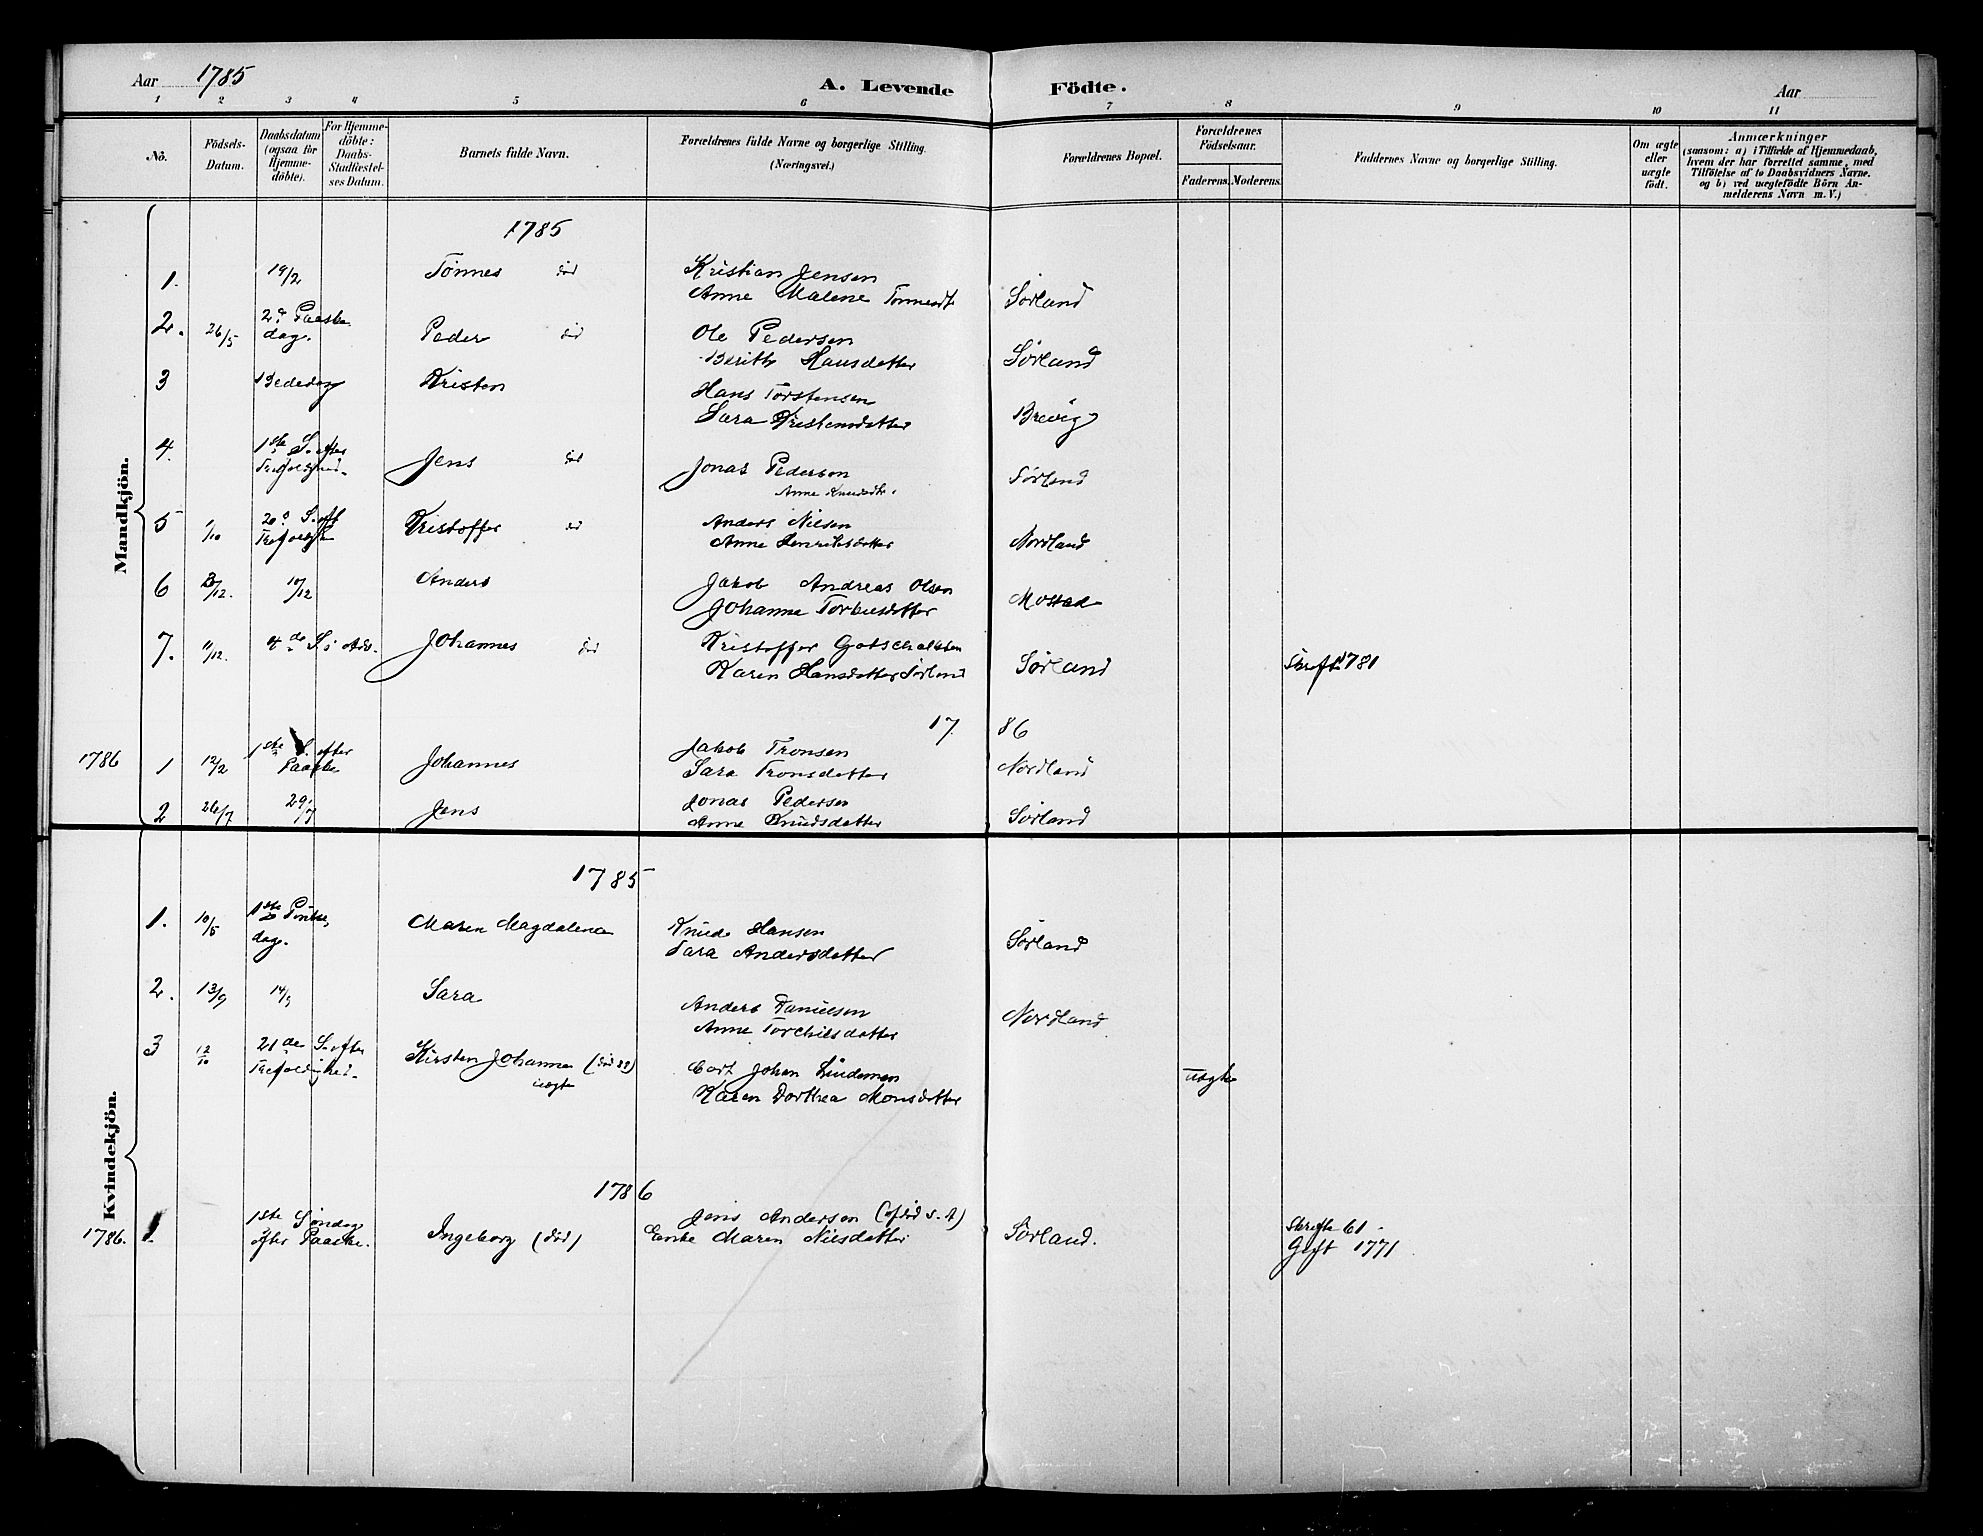 Aar 1785
A. Levende Födte.
Aar
1 2 3 4 5 6 7 8 9 10 11
No.
Födsels-
Datum.
Daabsdatum
(ogsaa for
Hjemme-
döbte).
For Hjemme-
döbte:
Daabs-
Stadfæstel-
ses Datum.
Barnets fulde Navn.
Forældrenes fulde Navne og borgerlige Stilling.
(Næringsvei.)
Forældrenes Bopæl.
Forældrenes
Födselsaar.
Faderens. Moderens.
Faddernes Navne og borgerlige Stilling.
Om ægte
eller
uægte
födt.
Anmærkninger
(saasom: a) i Tilfælde af Hjemmedaab,
hvem der har forrettet samme, med
Tilföielse af to Daabsvidners Navne.
og b) ved uægtefödte Börn An-
melderens Navn m. V.)
Mandkjön.
1785
1. 19/2 Tönnes död Kristian Jensen
Anne Malene Tönnesdt Sörland
2. 26/5 2d Paaske
dag. Peder död Ole Pedersen
Berith Hansdatter Sörland
3 Bededag Kristen Hans Torstensen
Sara Kristensdatter Brevig
4. 1ste S. efter
Trefoldighed. Jens död Jonas Pedersen
Anne Knudsdtr. Sörland
5 /10 20d S. eft
Trefoldigh Kristoffer död Anders Nilsen
Anne Henriksdatter Nordland
6 /12. 10/12 Anders Jakob Andreas Olsen
Johanne Torbersdatter Mostad
7. 11/12. 4de S. i Adv. Johannes död Kristoffer Gotschalksen
Karen Hansdatter Sörland Sörland Skrifte 1781
1786
1786 1 12/2 1ste S. efter
Paaske Johannes Jakob Tronsen
Sara Tronsdatter Nordland
2 26/7 29/7 Jens Jonas Pedersen
Anne Knudsdatter Sörland
Kvindekjön.
1785
1. 10/5 1ste Pintse
dag. Maren Magdalena Knud Hansen
Sara Andersdatter Sörland
2. 13/9 14/9 Sara Anders Danielsen
Anne Torchilsdatter Nordland
3 12/10 21de S. efter
Trefoldighed. Kirsten Johanna (död 88)
uægte Cort Johan Lindeman
Karen Dorthea Monsdatter uægte
1786
1786. 1. 1ste Söndag
efter Paaske. Ingeborg (död) Jens Andersen (afdöd s. A)
Enke Maren Nilsdatter Sörland. Skrifte 61
Gift 1771